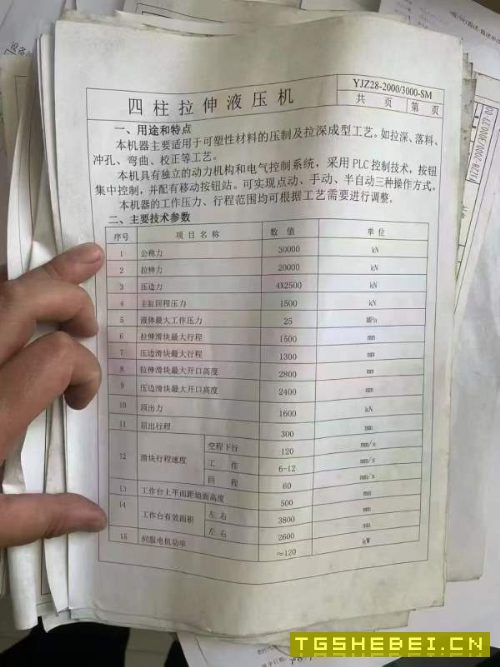 四柱拉伸液压机
YJZ28-2000/3000-SM
共 页 第 页
一、用途和特点
本机器主要适用于可塑性材料的压制及拉深成型工艺。如拉深、落料、
冲孔、弯曲、校正等工艺。
本机具有独立的动力机构和电气控制系统，采用PLC控制技术，按钮
集中控制，并配有移动按钮站。可实现点动、手动、半自动三种操作方式。
本机器的工作压力、行程范围均可根据工艺需要进行调整。
二、主要技术参数
序号 项目名称 数值 单位
1 公称力 30000 kN
2 拉伸力 20000 kN
3 压边力 4X2500 kN
4 主缸回程压力 1500 kN
5 液体最大工作压力 25 MPa
6 拉伸滑块最大行程 1500 mm
7 压边滑块最大行程 1300 mm
8 拉伸滑块最大开口高度 2800 mm
9 压边滑块最大开口高度 2400 mm
10 顶出力 1600 kN
11 顶出行程 300 mm
12 滑块行程速度 空程下行 120 mm/s
工作 6-12 mm/s
回程 60 mm/s
13 工作台上平面距地面高度 500 mm
14 工作台有效面积 左右 3800 mm
左右 2600 mm
15 伺服电机功率 ≈120 kW
TGSHEBEI.CN